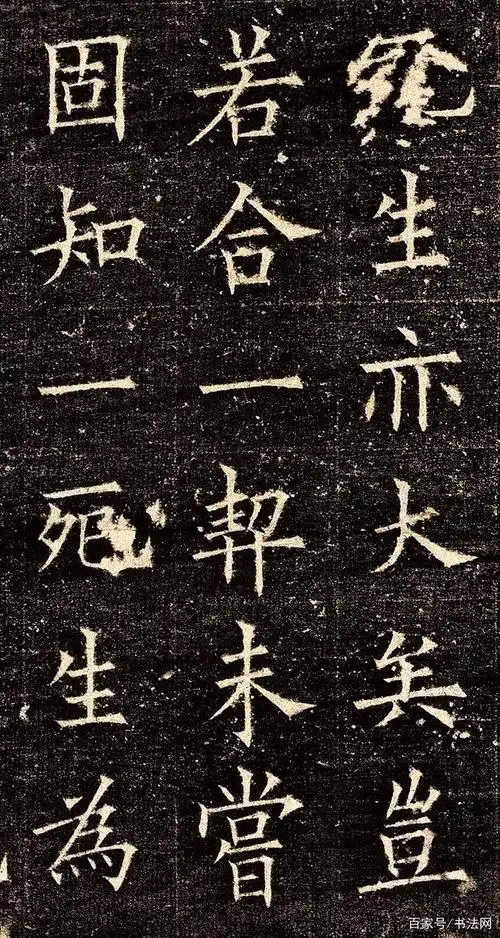 生亦大矣豈
若合一契未嘗
固知一死生為
百家号/书法网